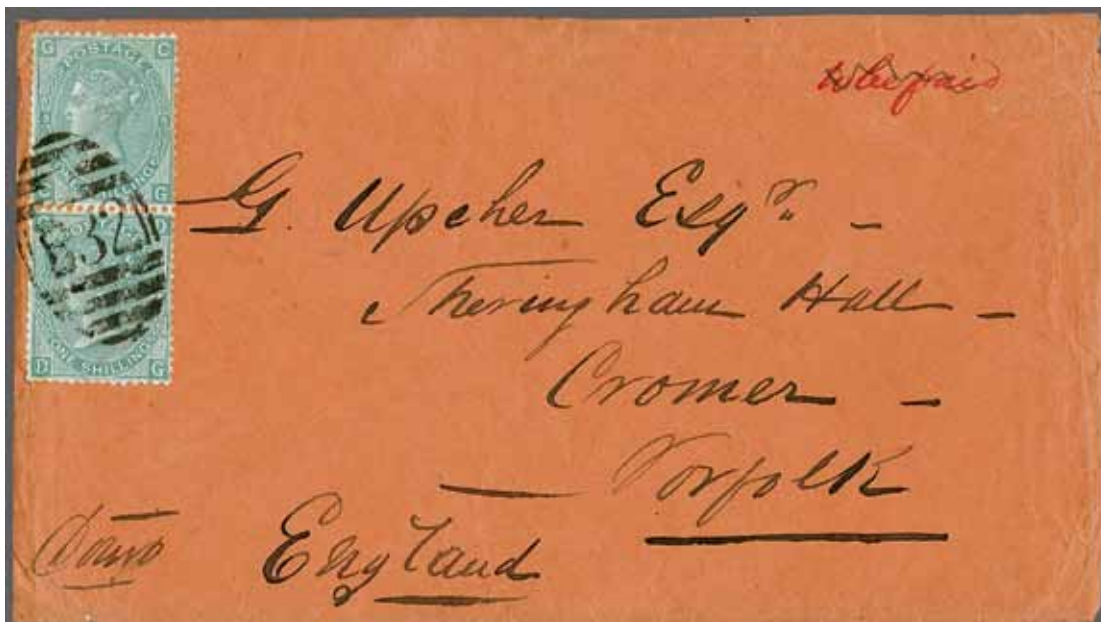 G C
POSTAGE
G
B32
G D
ONE SHILLING
D G
to be paid
G. Upcher Esqr. –
Sheringham Hall –
Cromer –
– Norfolk
England